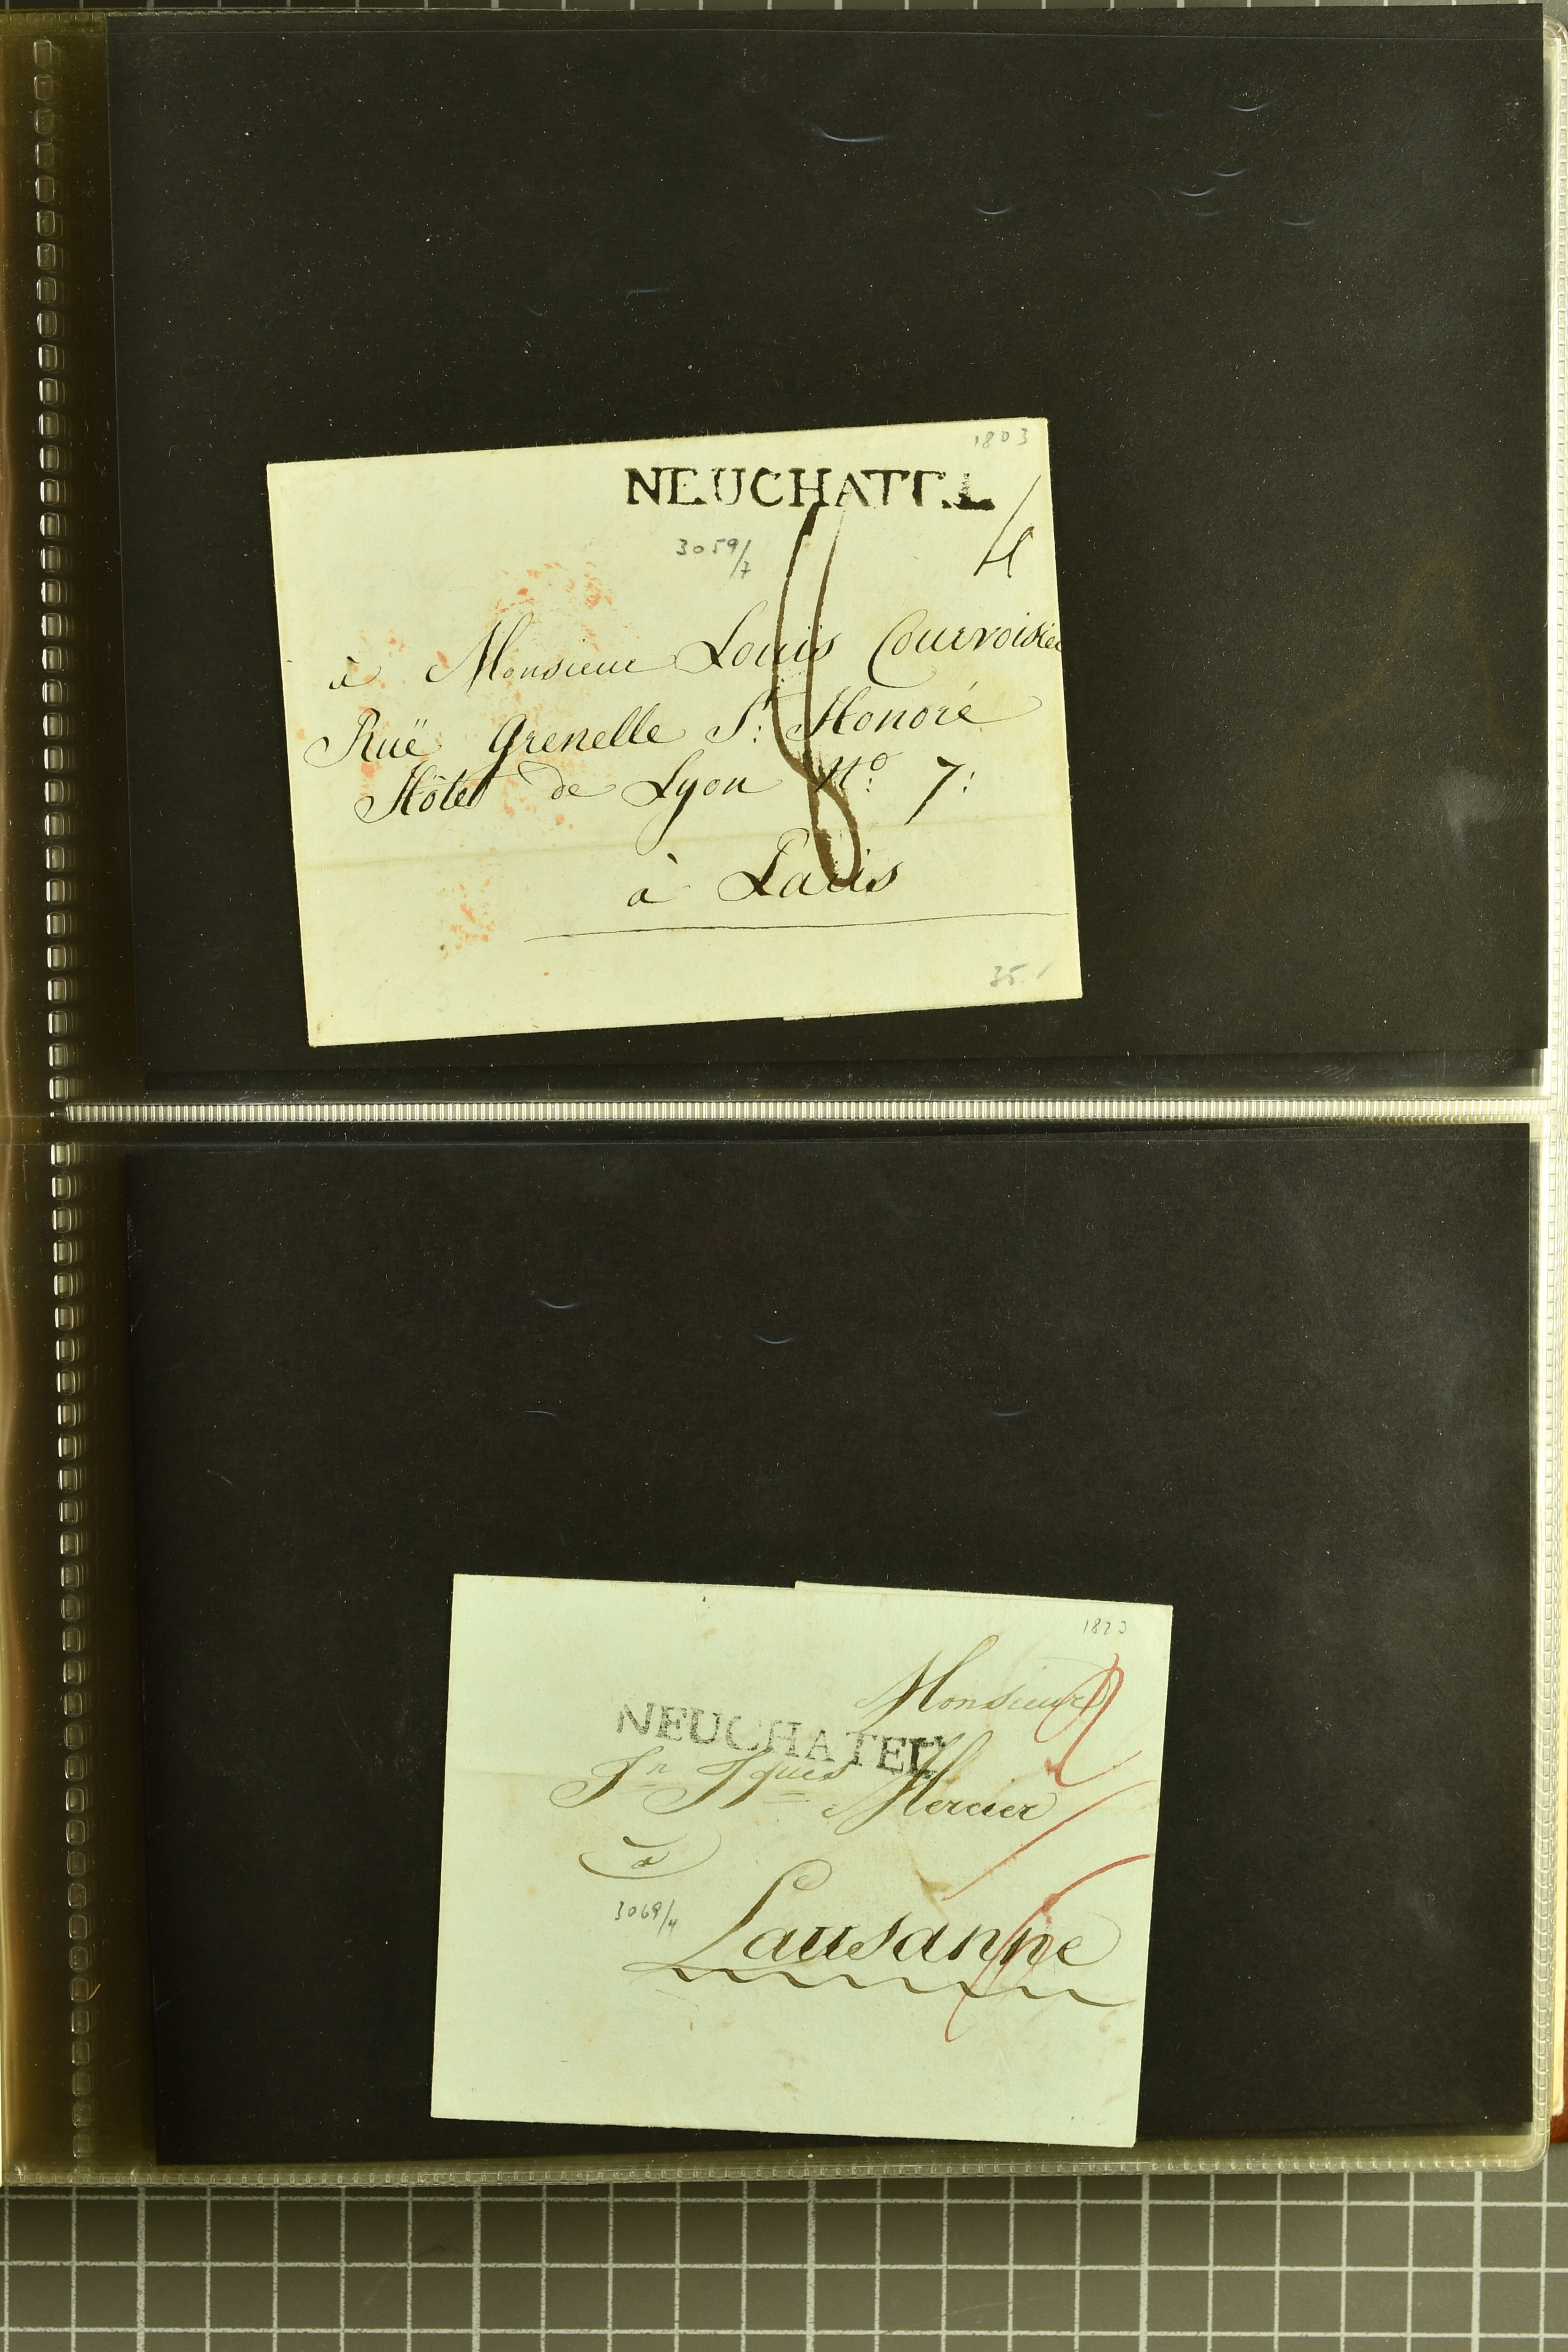 1803
NEUCHATEL
3059/7
4
à Monsieur Louis Courvoisier
Ruë Grenelle St: Honoré
Hôtel de Lyon No: 7:
à Paris
35
1823
Monsieur
NEUCHATEL
Jn Jques Mercier
à
3069/4
Lausanne